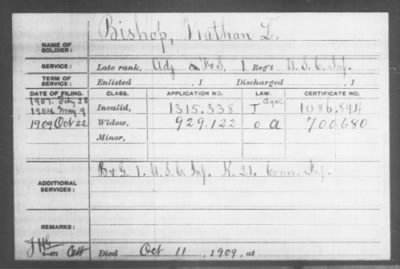 Bishop, Nathan L.
NAME OF SOLDIER:
SERVICE: Late rank, Adj F&S, 1 Reg't U.S.C. Inf.
TERM OF SERVICE: Enlisted , 1 Discharged , 1
DATE OF FILING. CLASS. APPLICATION NO. LAW. CERTIFICATE NO.
1907. Invalid, 1315.338 1086.894
1904 May 9
1909 Oct 22 Widow, 929.122 700680
Minor,
ADDITIONAL SERVICES: 1. U.S.C. Inf. K. 21. Conn. Inf.
REMARKS:
Died Oct 11, 1909, at